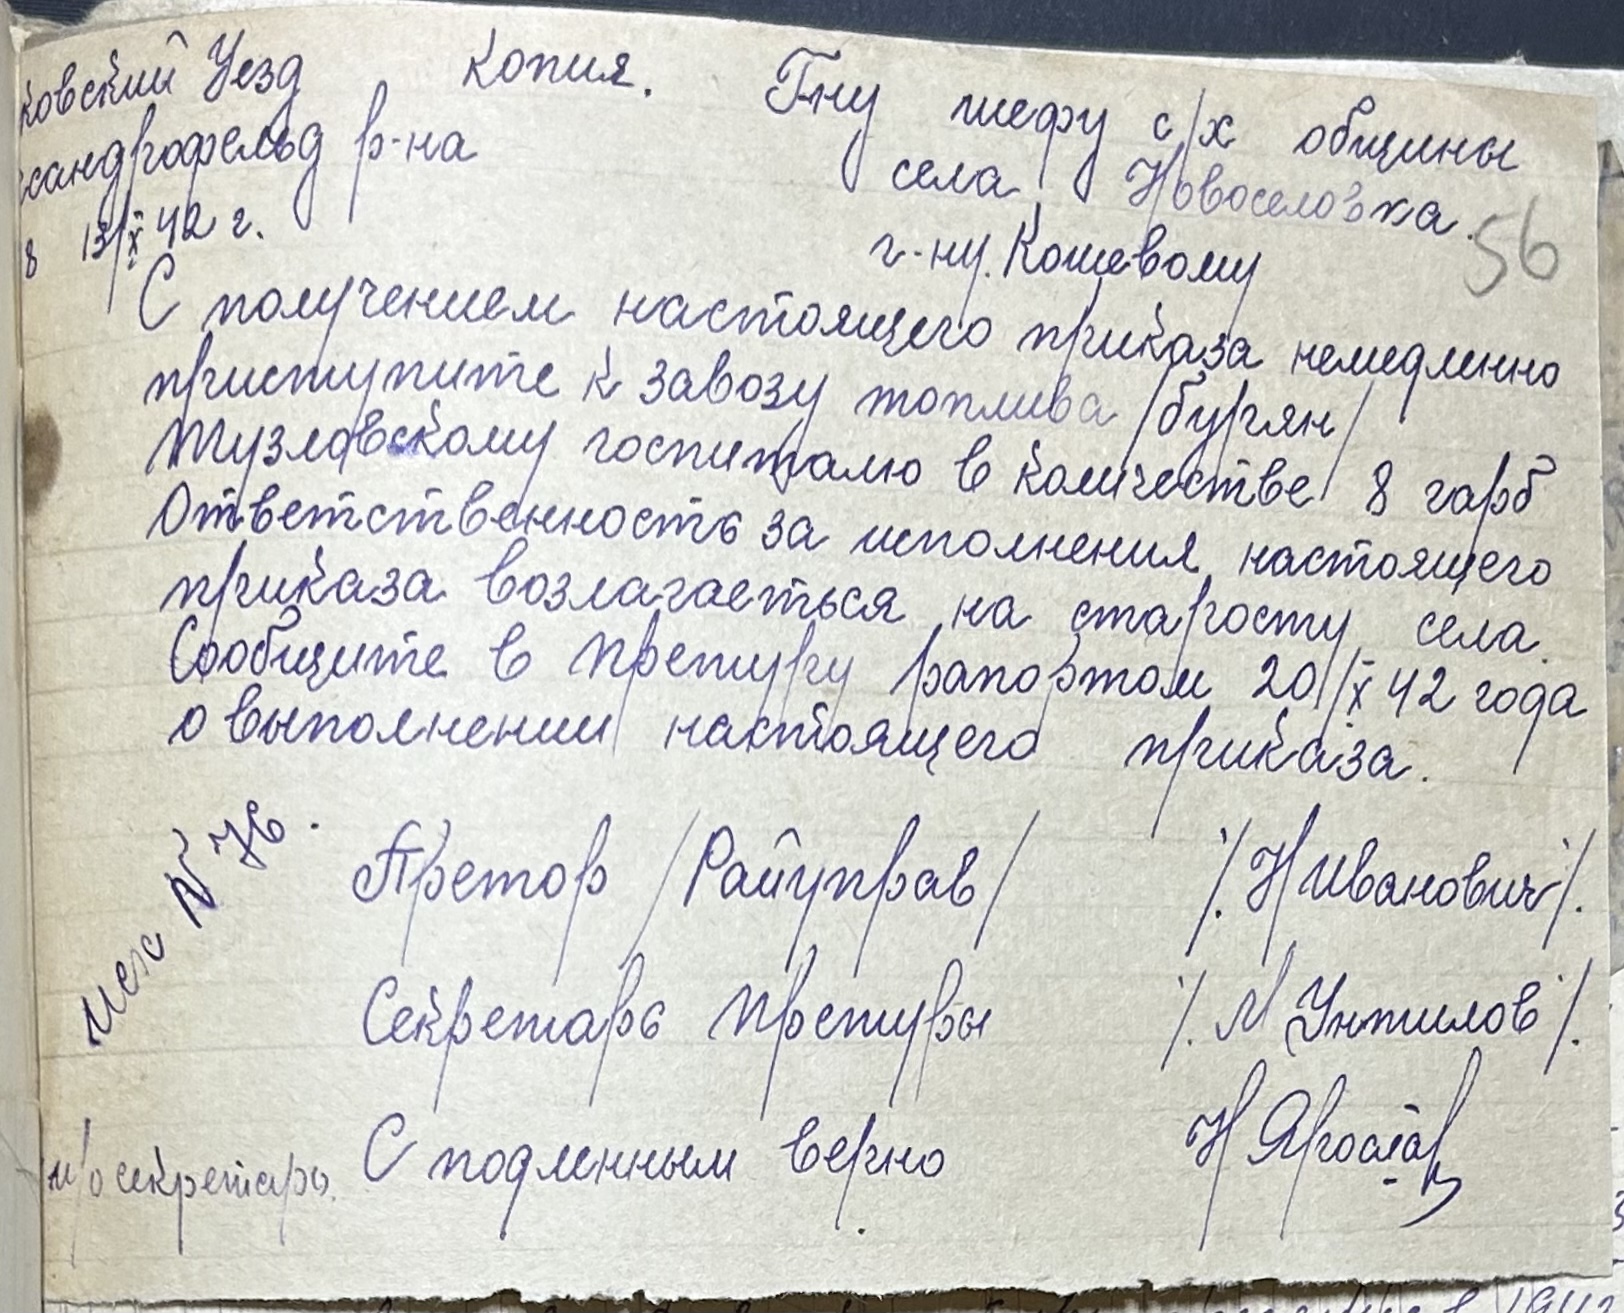 ковский Уезд
сандрофельд р-на
8 13/X 42 г.
Копия.
Г-ну шефу с/х общины
села Новоселовка.
г-ну. Кошевому
56
С получением настоящего приказа немедленно
приступите к завозу топлива /бурян/
Тузловскому госпиталю в количестве 8 гарб
Ответственность за исполнения настоящего
приказа возлагаеться на старосту села.
Сообщите в претуру рапортом 20/X 42 года
о выполнении настоящего приказа.
исх № 76.
Претор /Райуправ/ /. Н Иванович /.
Секретарь претуры /. М Унтилов /.
С подленным верно
и/о секретарь. Н Ярослав